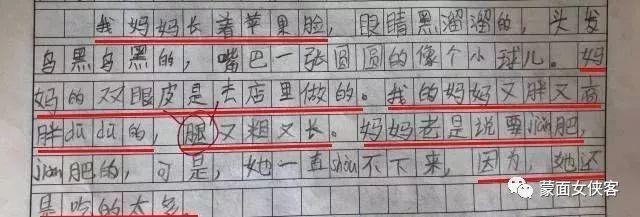 我妈妈长着苹果脸，眼睛黑溜溜的，头发
乌黑乌黑的，嘴巴一张圆圆的像个小球儿。妈
妈的双眼皮是去店里做的。我的妈妈又胖又高
胖dūdū的，腿又粗又长。妈妈老是说要jiǎn肥，
jiǎn肥的，可是，她一直shòu不下来，因为，她还
是吃的太多
蒙面女侠客